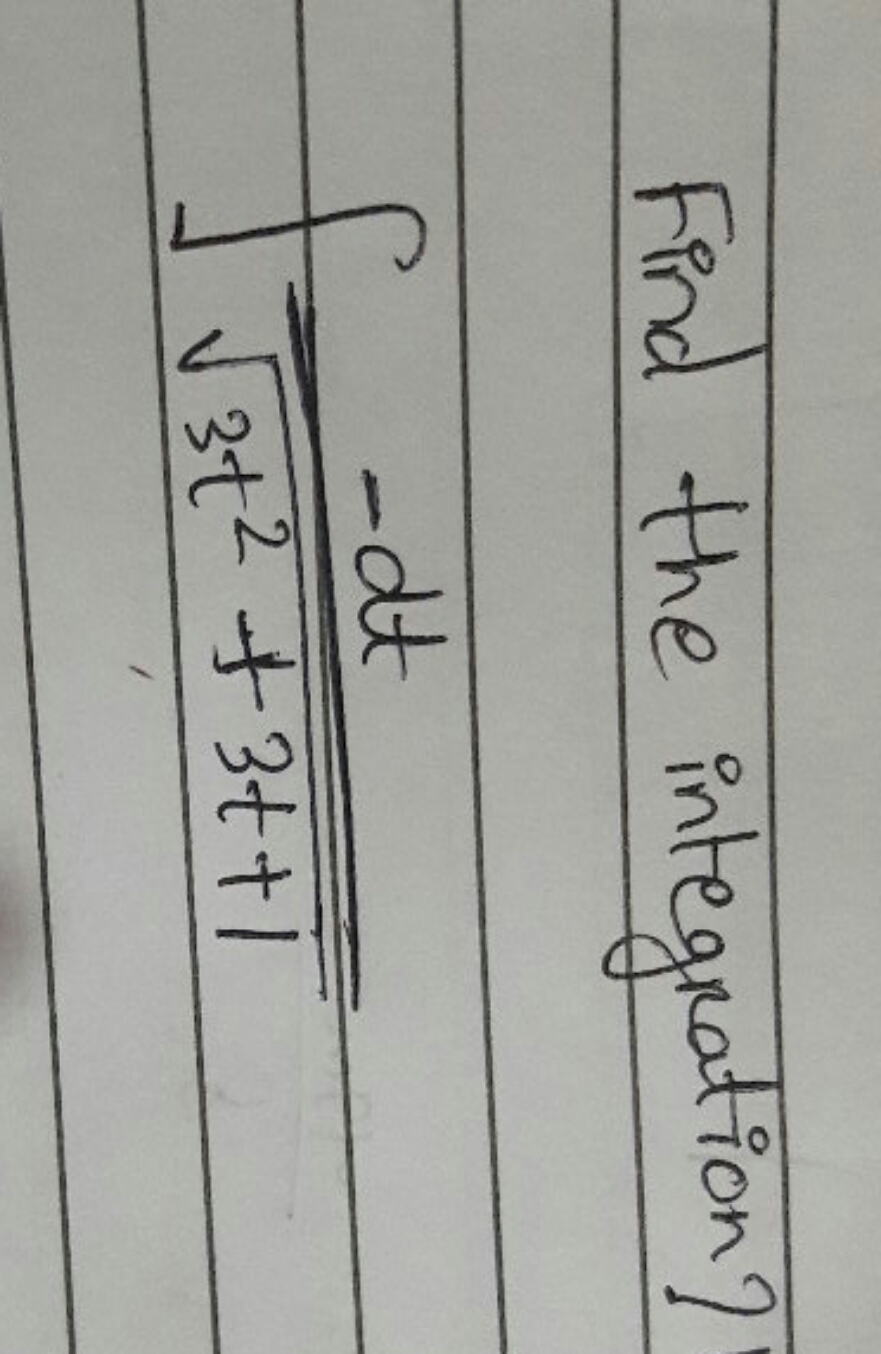 Find the integration?
∫ -dt / √(3t² + 3t + 1)